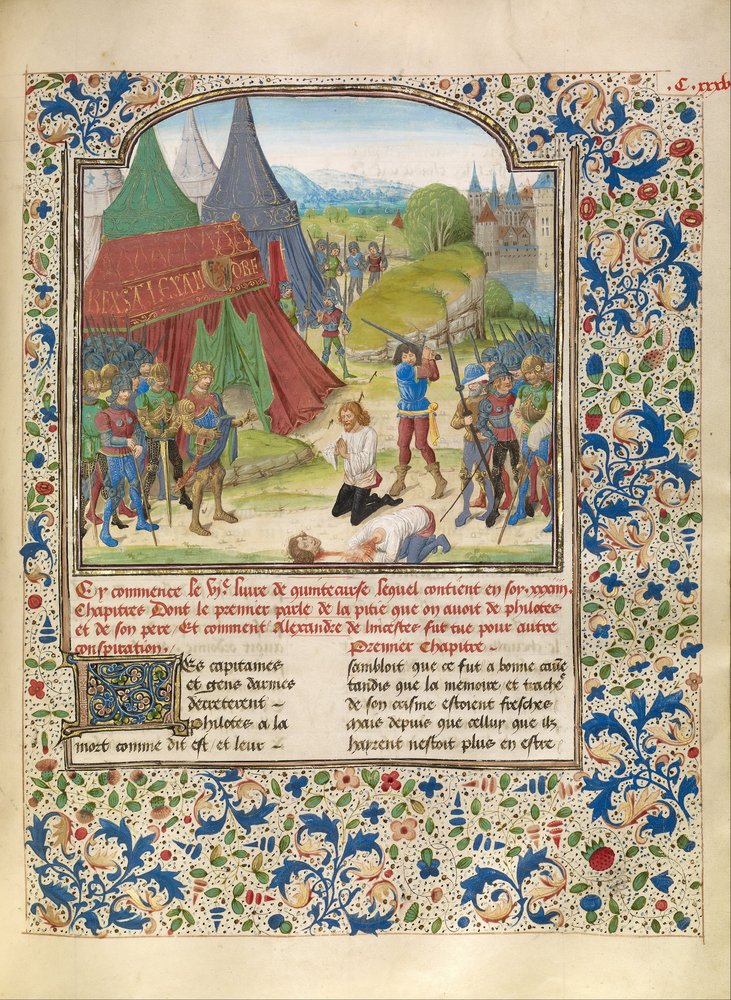 .C.xxxv
REX ALEXANDRE
Cy commence le vije livre de quintecurse lequel contient en soy .xxxiiij.
Chapitres Dont le premier parle de la pitie que on avoit de philotes
et de son pere, Et comment Alexandre de lincestes fut tue pour autre
conspiration. Premier Chapitre.
Les capitaines
et gens darmes
decreterent
Philotes a la
mort comme dit est / et leur
sambloit que ce fut a bonne cause
tandis que la memoire et trache
de son crisme estoient fresches
Mais depuis que cellui que ilz
hayrent nestoit plus en estre